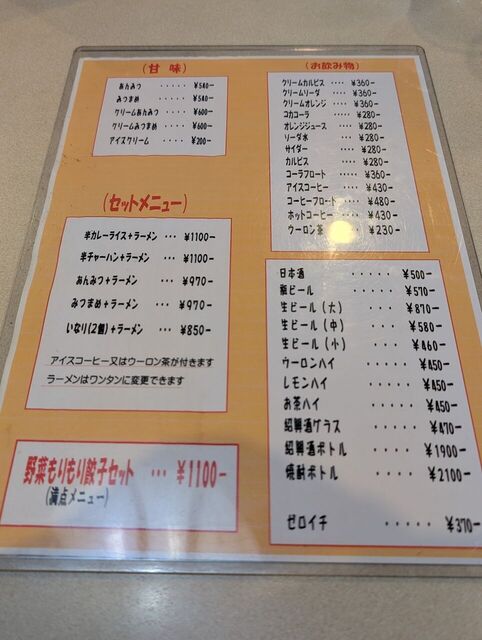 (甘 味)
あんみつ ····· ¥540-
みつまめ ····· ¥540-
クリームあんみつ ··· ¥600-
クリームみつまめ ··· ¥600-
アイスクリーム ··· ¥200-
(セットメニュー)
半カレーライス+ラーメン ··· ¥1100-
半チャーハン+ラーメン ··· ¥1100-
あんみつ+ラーメン ··· ¥970-
みつまめ+ラーメン ··· ¥970-
いなり(2個)+ラーメン ··· ¥850-
アイスコーヒー又はウーロン茶が付きます
ラーメンはワンタンに変更できます
野菜もりもり餃子セット ··· ¥1100-
(満点メニュー)
(お飲み物)
クリームカルピス ···· ¥360-
クリームソーダ ···· ¥360-
クリームオレンジ ···· ¥360-
コカコーラ ···· ¥280-
オレンジジュース ···· ¥280-
ソーダ水 ···· ¥280-
サイダー ···· ¥280-
カルピス ···· ¥280-
コーラフロート ···· ¥360-
アイスコーヒー ···· ¥430-
コーヒーフロート ···· ¥480-
ホットコーヒー ···· ¥430-
ウーロン茶 ···· ¥230-
日本酒 ····· ¥500-
瓶ビール ····· ¥570-
生ビール(大) ···· ¥870-
生ビール(中) ···· ¥580-
生ビール(小) ···· ¥460-
ウーロンハイ ····· ¥450-
レモンハイ ····· ¥450-
お茶ハイ ····· ¥450-
紹興酒グラス ····· ¥470-
紹興酒ボトル ···· ¥1900-
焼酎ボトル ····· ¥2100-
ゼロイチ ····· ¥370-